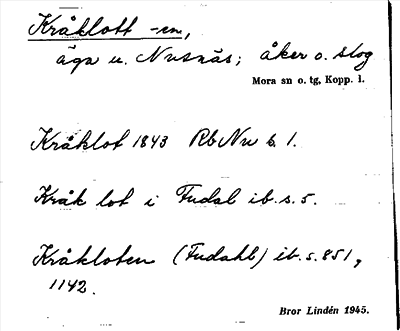 Kråklott -en,
äga u. Nusnäs; åker o. skog
Mora sn o. tg, Kopp. l.
Kråklot 1843 RbNu s. 1.
Kråk lot i Fudal ib. s. 5.
Kråkloten (Fudahl) ib. s. 851,
1142.
Bror Lindén 1945.